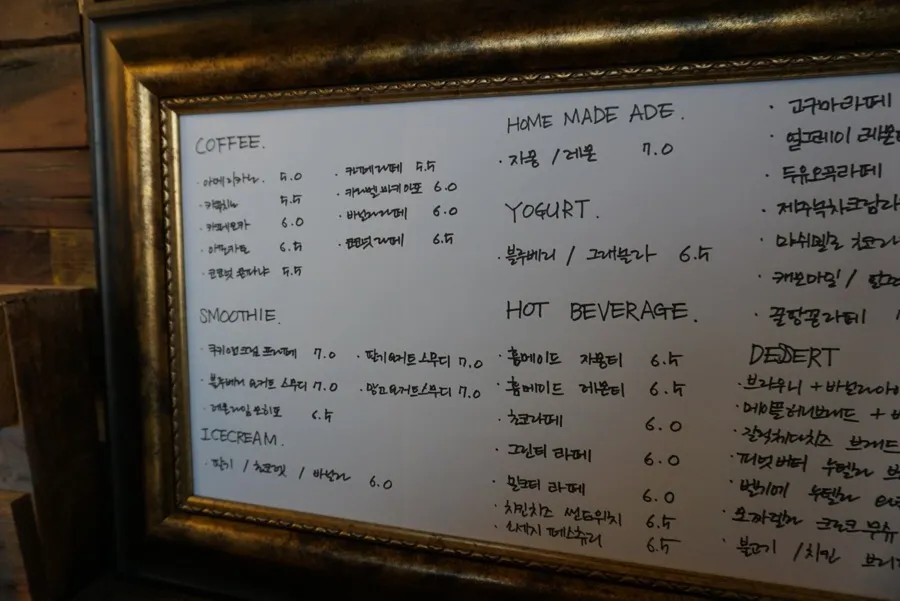 COFFEE.
· 아메리카노. 5.0
· 카푸치노 5.5
· 카페모카 6.0
· 아포카토 6.5
· 코코넛 콘파냐 5.5
· 카페라떼 5.5
· 카라멜 마키아또 6.0
· 바닐라라떼 6.0
· 코코넛라떼 6.5
SMOOTHIE.
· 쿠키앤크림 프라페 7.0
· 블루베리 요거트 스무디 7.0
· 레몬라임 모히또 6.5
· 딸기요거트스무디 7.0
· 망고요거트스무디 7.0
ICECREAM.
· 딸기 / 초코렛 / 바닐라 6.0
HOME MADE ADE.
· 자몽 / 레몬 7.0
YOGURT.
· 블루베리 / 그래놀라 6.5
HOT BEVERAGE.
· 홈메이드 자몽티 6.5
· 홈메이드 레몬티 6.5
· 초코라떼 6.0
· 그린티 라떼 6.0
· 밀크티 라떼 6.0
· 치킨치즈 샌드위치 6.5
· 소세지 페스츄리 6.5
· 고구마라떼
· 얼그레이 레몬
· 두유오곡라떼
· 제주녹차크림라
· 마쉬멜로 초코라
· 캐모마일 /
· 꿀땅콩라떼
DESSERT
· 브라우니 + 바닐라아
· 메이플허니브레드 +
· 갈릭체다치즈 브레드
· 피넛버터 누텔라
· 벨기에 누텔라
· 모짜렐라 크로크무슈
· 불고기 / 치킨 브리